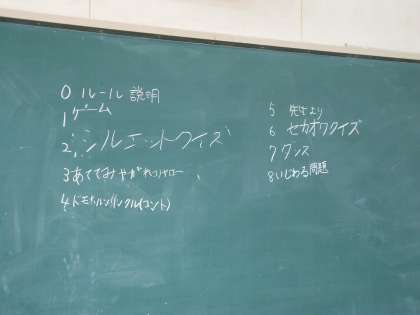 0 ルール 説明
1 ゲーム
2 シルエットクイズ
3 あててみやがれ
4 (コント)
5 先生より
6 セカオワクイズ
7 ダンス
8 いじわる問題